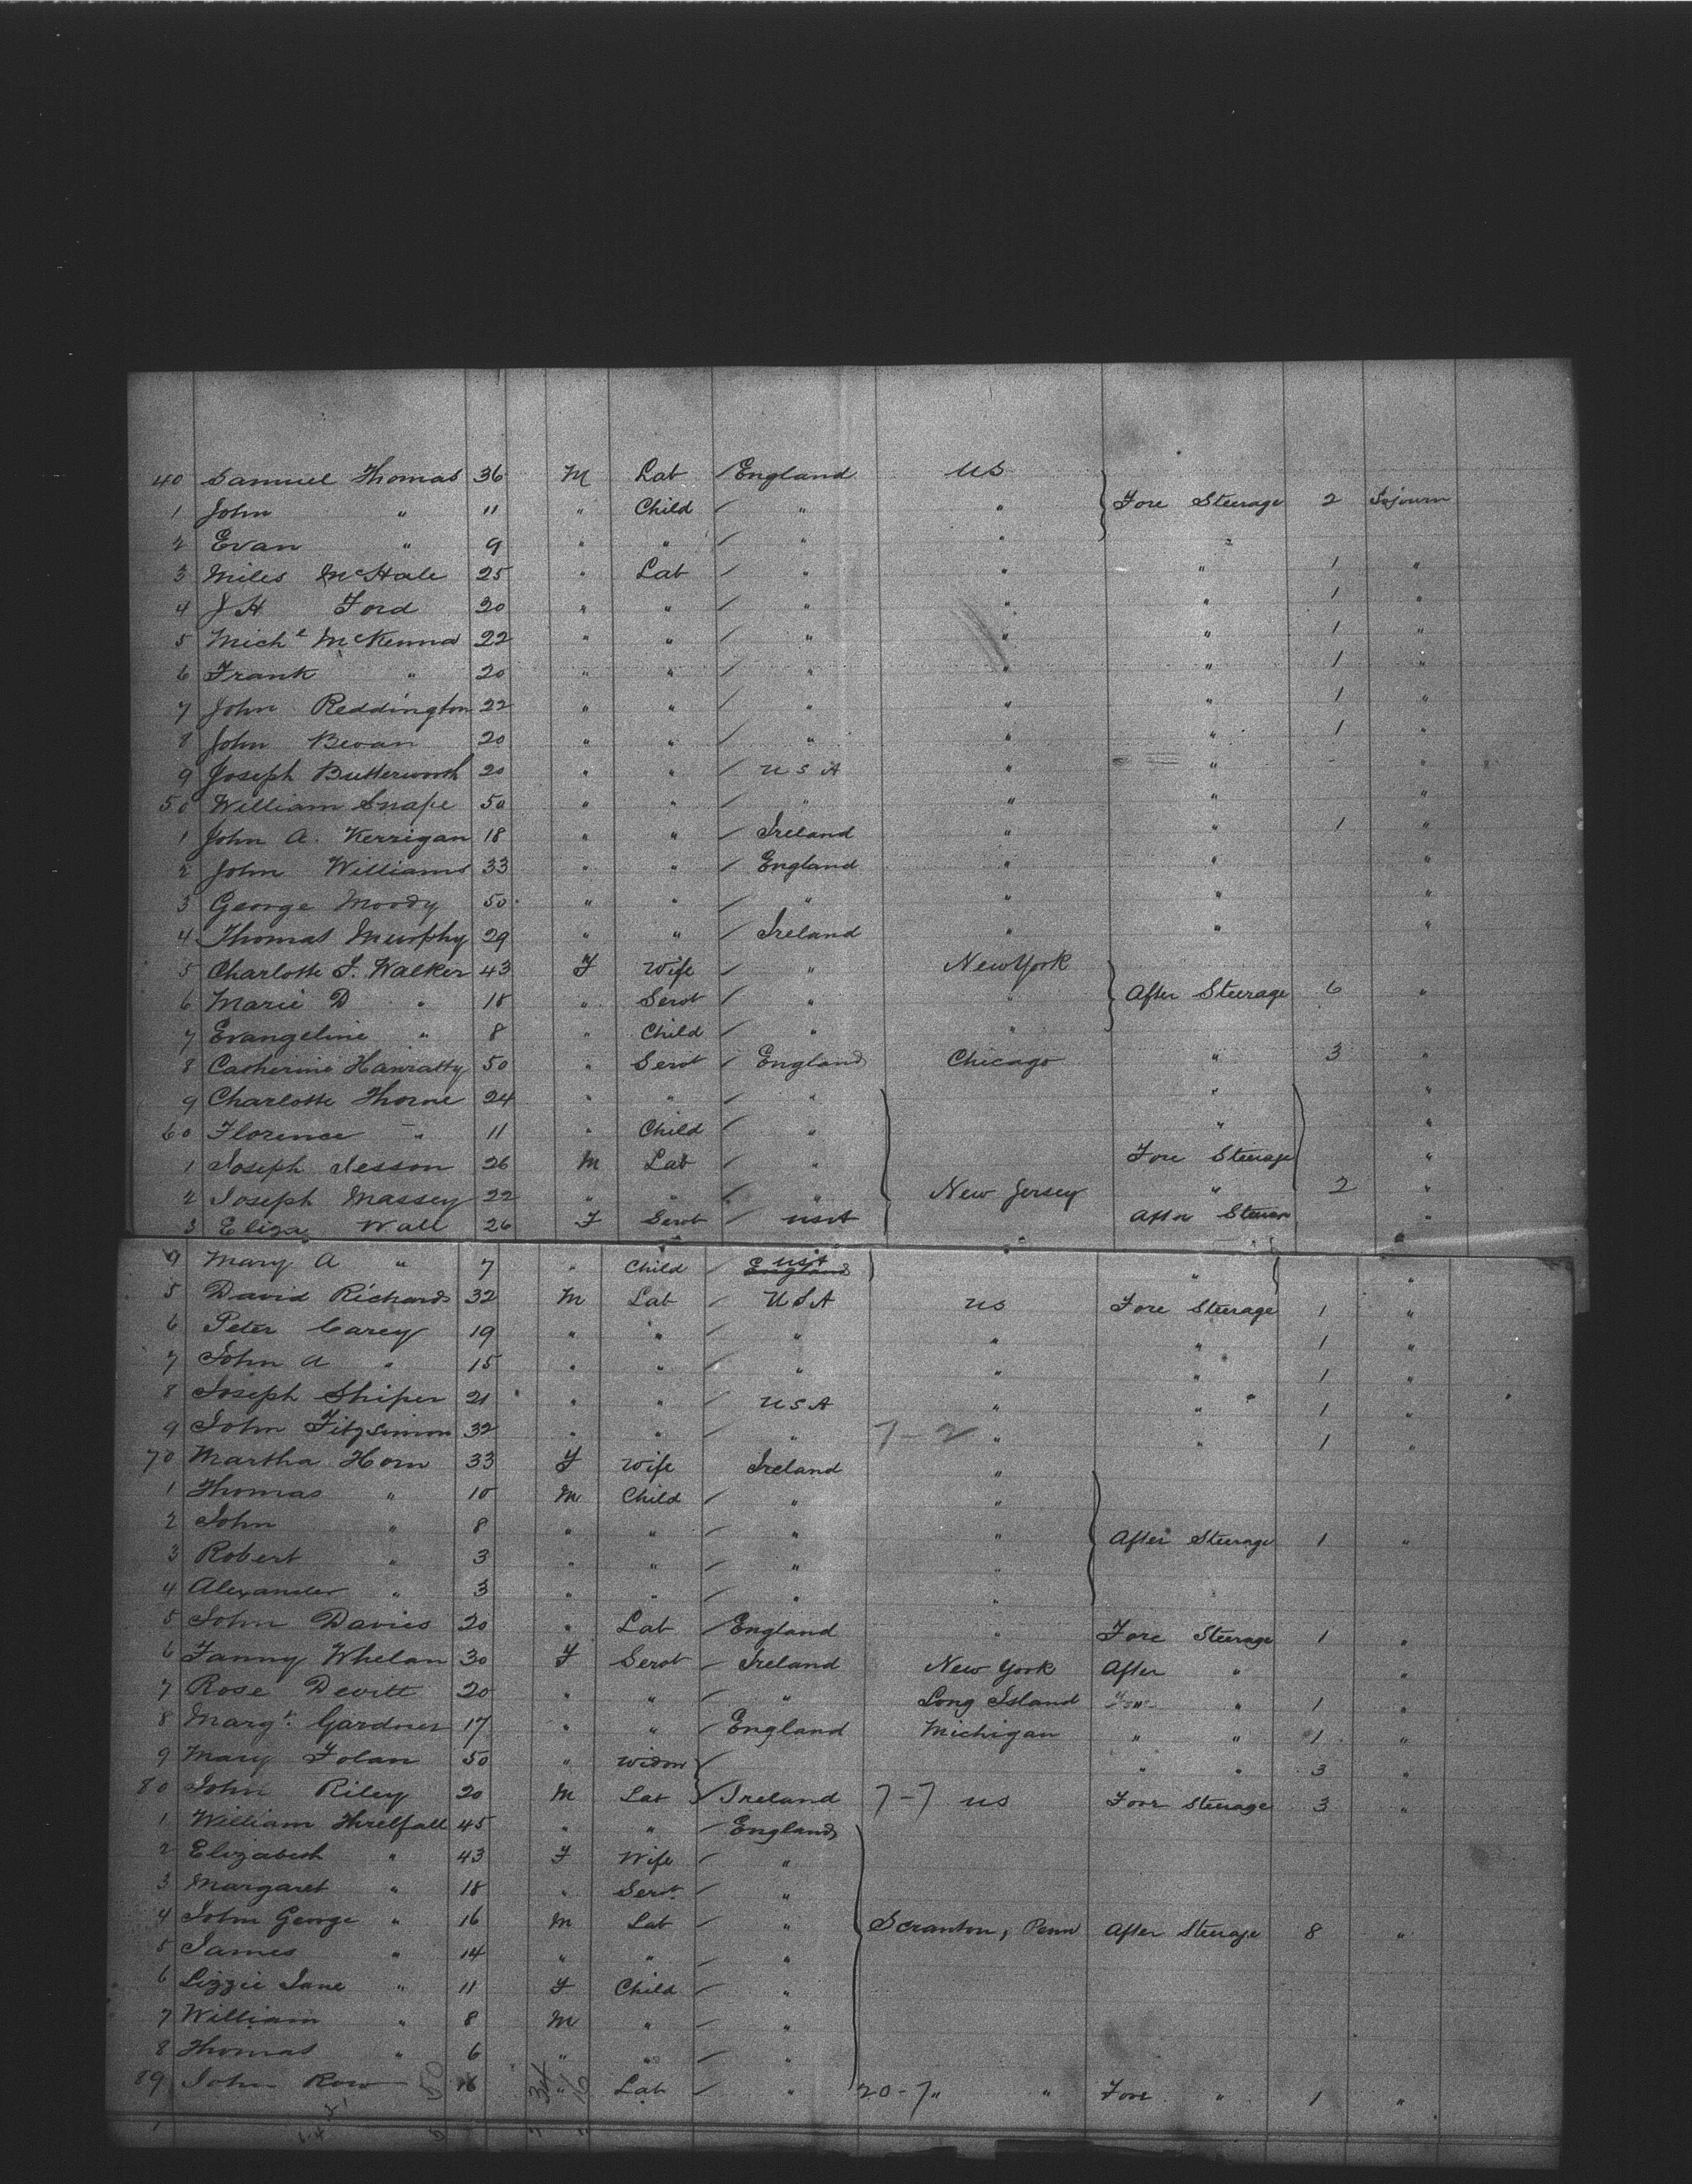 40 Samuel Thomas 36 M Lab / England US
1 John " 11 " Child / " " Fore Steerage 2 Sojourn
2 Evan " 9 " " / " " "
3 Miles McHale 25 " Lab / " " " 1 "
4 J H Ford 20 " " / " " " 1 "
5 Michl McKenna 22 " " / " " " 1 "
6 Frank " 20 " " / " " " 1 "
7 John Reddington 22 " " / " " " 1 "
8 John Bevan 20 " " / " " " 1 "
9 Joseph Butterworth 20 " " / U S A " " "
50 William Snape 50 " " / " " " "
1 John A. Kerrigan 18 " " / Ireland " " 1 "
2 John Williams 33 " " / England " " "
3 George Moody 50 " " / " " " "
4 Thomas Murphy 29 " " / Ireland " " "
5 Charlotte J. Walker 43 F Wife / " New York
6 Marie D " 18 " Servt / " " After Steerage 6 "
7 Evangeline " 8 " Child / " "
8 Catherine Hanratty 50 " Servt / England Chicago " 3 "
9 Charlotte Thorne 24 " " / " " "
60 Florence " 11 " Child / " " "
1 Joseph Jesson 26 M Lab / " Fore Steerage "
2 Joseph Massey 22 " " / " New Jersey " 2 "
3 Eliza Wall 26 F Servt / USA After Steer "
Mary A " 7 " Child / England USA " "
5 David Richards 32 M Lab / USA US Fore Steerage 1 "
6 Peter Carey 19 " " / " " " 1 "
7 John A " 15 " " / " " " 1 "
8 Joseph Shiper 21 " " / U S A " " 1 "
9 John Fitzsimon 32 " " / " 7-2 " " 1 "
70 Martha Horn 33 F Wife Ireland "
1 Thomas " 10 M Child / " "
2 John " 8 " " / " " After Steerage 1 "
3 Robert " 3 " " / " "
4 Alexander " 3 " " / " "
5 John Davies 20 " Lab / England " Fore Steerage 1 "
6 Fanny Whelan 30 F Servt / Ireland New York After " "
7 Rose Devitt 20 " " / " Long Island " " 1 "
8 Margt. Gardner 17 " " / England Michigan " " 1 "
9 Mary Folan 50 " Widow / " " 3 "
80 John Riley 20 M Lab / Ireland 7-7 US Fore Steerage 3 "
1 William Threlfall 45 " " / England
2 Elizabeth " 43 F Wife / "
3 Margaret " 18 " Servt / "
4 John George " 16 M Lab / " Scranton, Penn After Steerage 8 "
5 James " 14 " " / "
6 Lizzie Jane " 11 F Child / "
7 William " 8 M " / "
8 Thomas " 6 " " / "
89 John Row 16 " Lab / " 20-7 " " Fore " 1 "